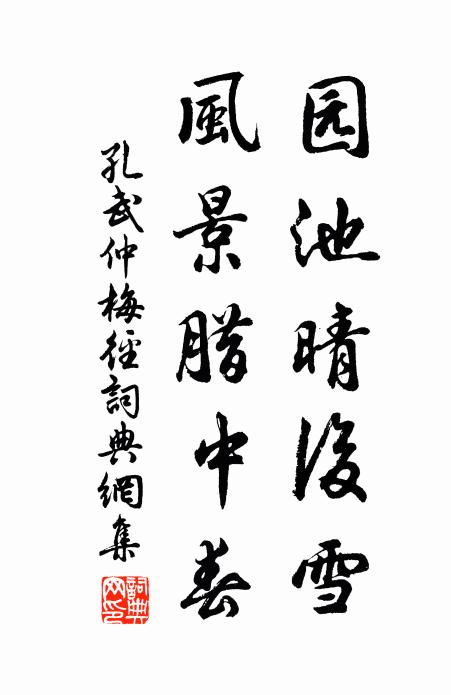 园池晴後雪
風景腊中春
孔武仲梅徑詞典網集
詞典网印